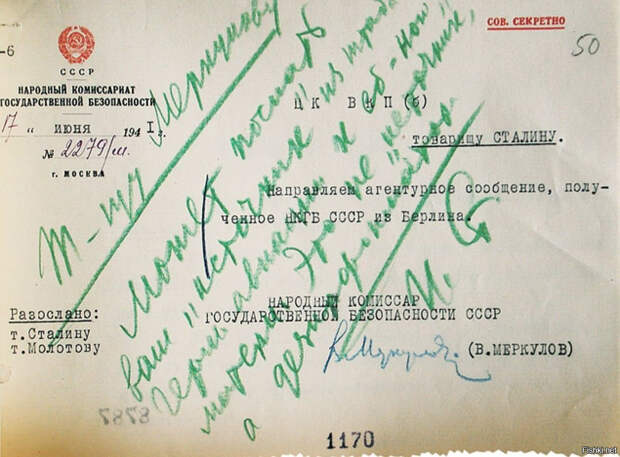 -6
СССР
НАРОДНЫЙ КОМИССАРИАТ
ГОСУДАРСТВЕННОЙ БЕЗОПАСНОСТИ
17 " июня 1941 г.
№ 2279/м.
г. МОСКВА
СОВ. СЕКРЕТНО
50
Ц К В К П (б)
товарищу СТАЛИНУ.
Направляем агентурное сообщение, полу-
ченное НКГБ СССР из Берлина.
НАРОДНЫЙ КОМИССАР
ГОСУДАРСТВЕННОЙ БЕЗОПАСНОСТИ СССР
В. Меркулов. (В.МЕРКУЛОВ)
Разослано:
т.Сталину
т.Молотову
Т-щу Меркулову
Может послать
ваш "источник" из штаба
Герм. авиации к еб-ной
матери. Это не "источник",
а дезинформатор.
И. Ст
8787
1170
Fishki.net